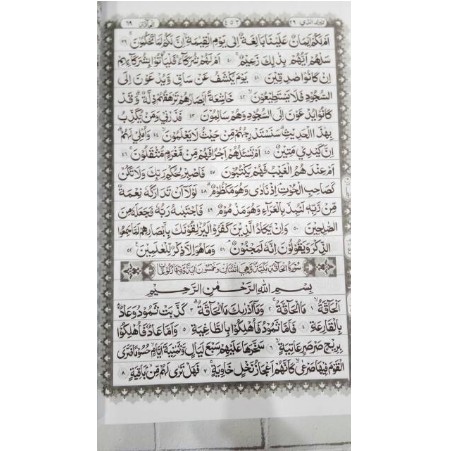 اَمْ لَكُمْ اَيْمَانٌ عَلَيْنَا بَالِغَةٌ اِلٰى يَوْمِ الْقِيٰمَةِ اِنَّ لَكُمْ لَمَا تَحْكُمُوْنَ ۳۹
سَلْهُمْ اَيُّهُمْ بِذٰلِكَ زَعِيْمٌ ۴۰ اَمْ لَهُمْ شُرَكَآءُ فَلْيَاْتُوْا بِشُرَكَآئِهِمْ
اِنْ كَانُوْا صٰدِقِيْنَ ۴۱ يَوْمَ يُكْشَفُ عَنْ سَاقٍ وَّيُدْعَوْنَ اِلَى
السُّجُوْدِ فَلَا يَسْتَطِيْعُوْنَ ۴۲ خَاشِعَةً اَبْصَارُهُمْ تَرْهَقُهُمْ ذِلَّةٌ وَقَدْ
كَانُوْا يُدْعَوْنَ اِلَى السُّجُوْدِ وَهُمْ سَالِمُوْنَ ۴۳ فَذَرْنِيْ وَمَنْ يُّكَذِّبُ
بِهٰذَا الْحَدِيْثِ سَنَسْتَدْرِجُهُمْ مِّنْ حَيْثُ لَا يَعْلَمُوْنَ ۴۴ وَاُمْلِيْ لَهُمْ
اِنَّ كَيْدِيْ مَتِيْنٌ ۴۵ اَمْ تَسْئَلُهُمْ اَجْرًا فَهُمْ مِّنْ مَّغْرَمٍ مُّثْقَلُوْنَ ۴۶
اَمْ عِنْدَهُمُ الْغَيْبُ فَهُمْ يَكْتُبُوْنَ ۴۷ فَاصْبِرْ لِحُكْمِ رَبِّكَ وَلَا تَكُنْ
كَصَاحِبِ الْحُوْتِ اِذْ نَادٰى وَهُوَ مَكْظُوْمٌ ۴۸ لَوْلَا اَنْ تَدَارَكَهٗ نِعْمَةٌ
مِّنْ رَّبِّهٖ لَنُبِذَ بِالْعَرَآءِ وَهُوَ مَذْمُوْمٌ ۴۹ فَاجْتَبٰهُ رَبُّهٗ فَجَعَلَهٗ مِنَ
الصّٰلِحِيْنَ ۵۰ وَاِنْ يَّكَادُ الَّذِيْنَ كَفَرُوْا لَيُزْلِقُوْنَكَ بِاَبْصَارِهِمْ لَمَّا سَمِعُوا
الذِّكْرَ وَيَقُوْلُوْنَ اِنَّهٗ لَمَجْنُوْنٌ ۵۱ وَمَا هُوَ اِلَّا ذِكْرٌ لِّلْعٰلَمِيْنَ ۵۲
بِسْمِ اللهِ الرَّحْمٰنِ الرَّحِيْمِ
اَلْحَآقَّةُ ۱ مَا الْحَآقَّةُ ۲ وَمَا اَدْرٰىكَ مَا الْحَآقَّةُ ۳ كَذَّبَتْ ثَمُوْدُ وَعَادٌ
بِالْقَارِعَةِ ۴ فَاَمَّا ثَمُوْدُ فَاُهْلِكُوْا بِالطَّاغِيَةِ ۵ وَاَمَّا عَادٌ فَاُهْلِكُوْا
بِرِيْحٍ صَرْصَرٍ عَاتِيَةٍ ۶ سَخَّرَهَا عَلَيْهِمْ سَبْعَ لَيَالٍ وَّثَمٰنِيَةَ اَيَّامٍ حُسُوْمًا فَتَرَى
الْقَوْمَ فِيْهَا صَرْعٰى كَاَنَّهُمْ اَعْجَازُ نَخْلٍ خَاوِيَةٍ ۷ فَهَلْ تَرٰى لَهُمْ مِّنْ بَاقِيَةٍ ۸